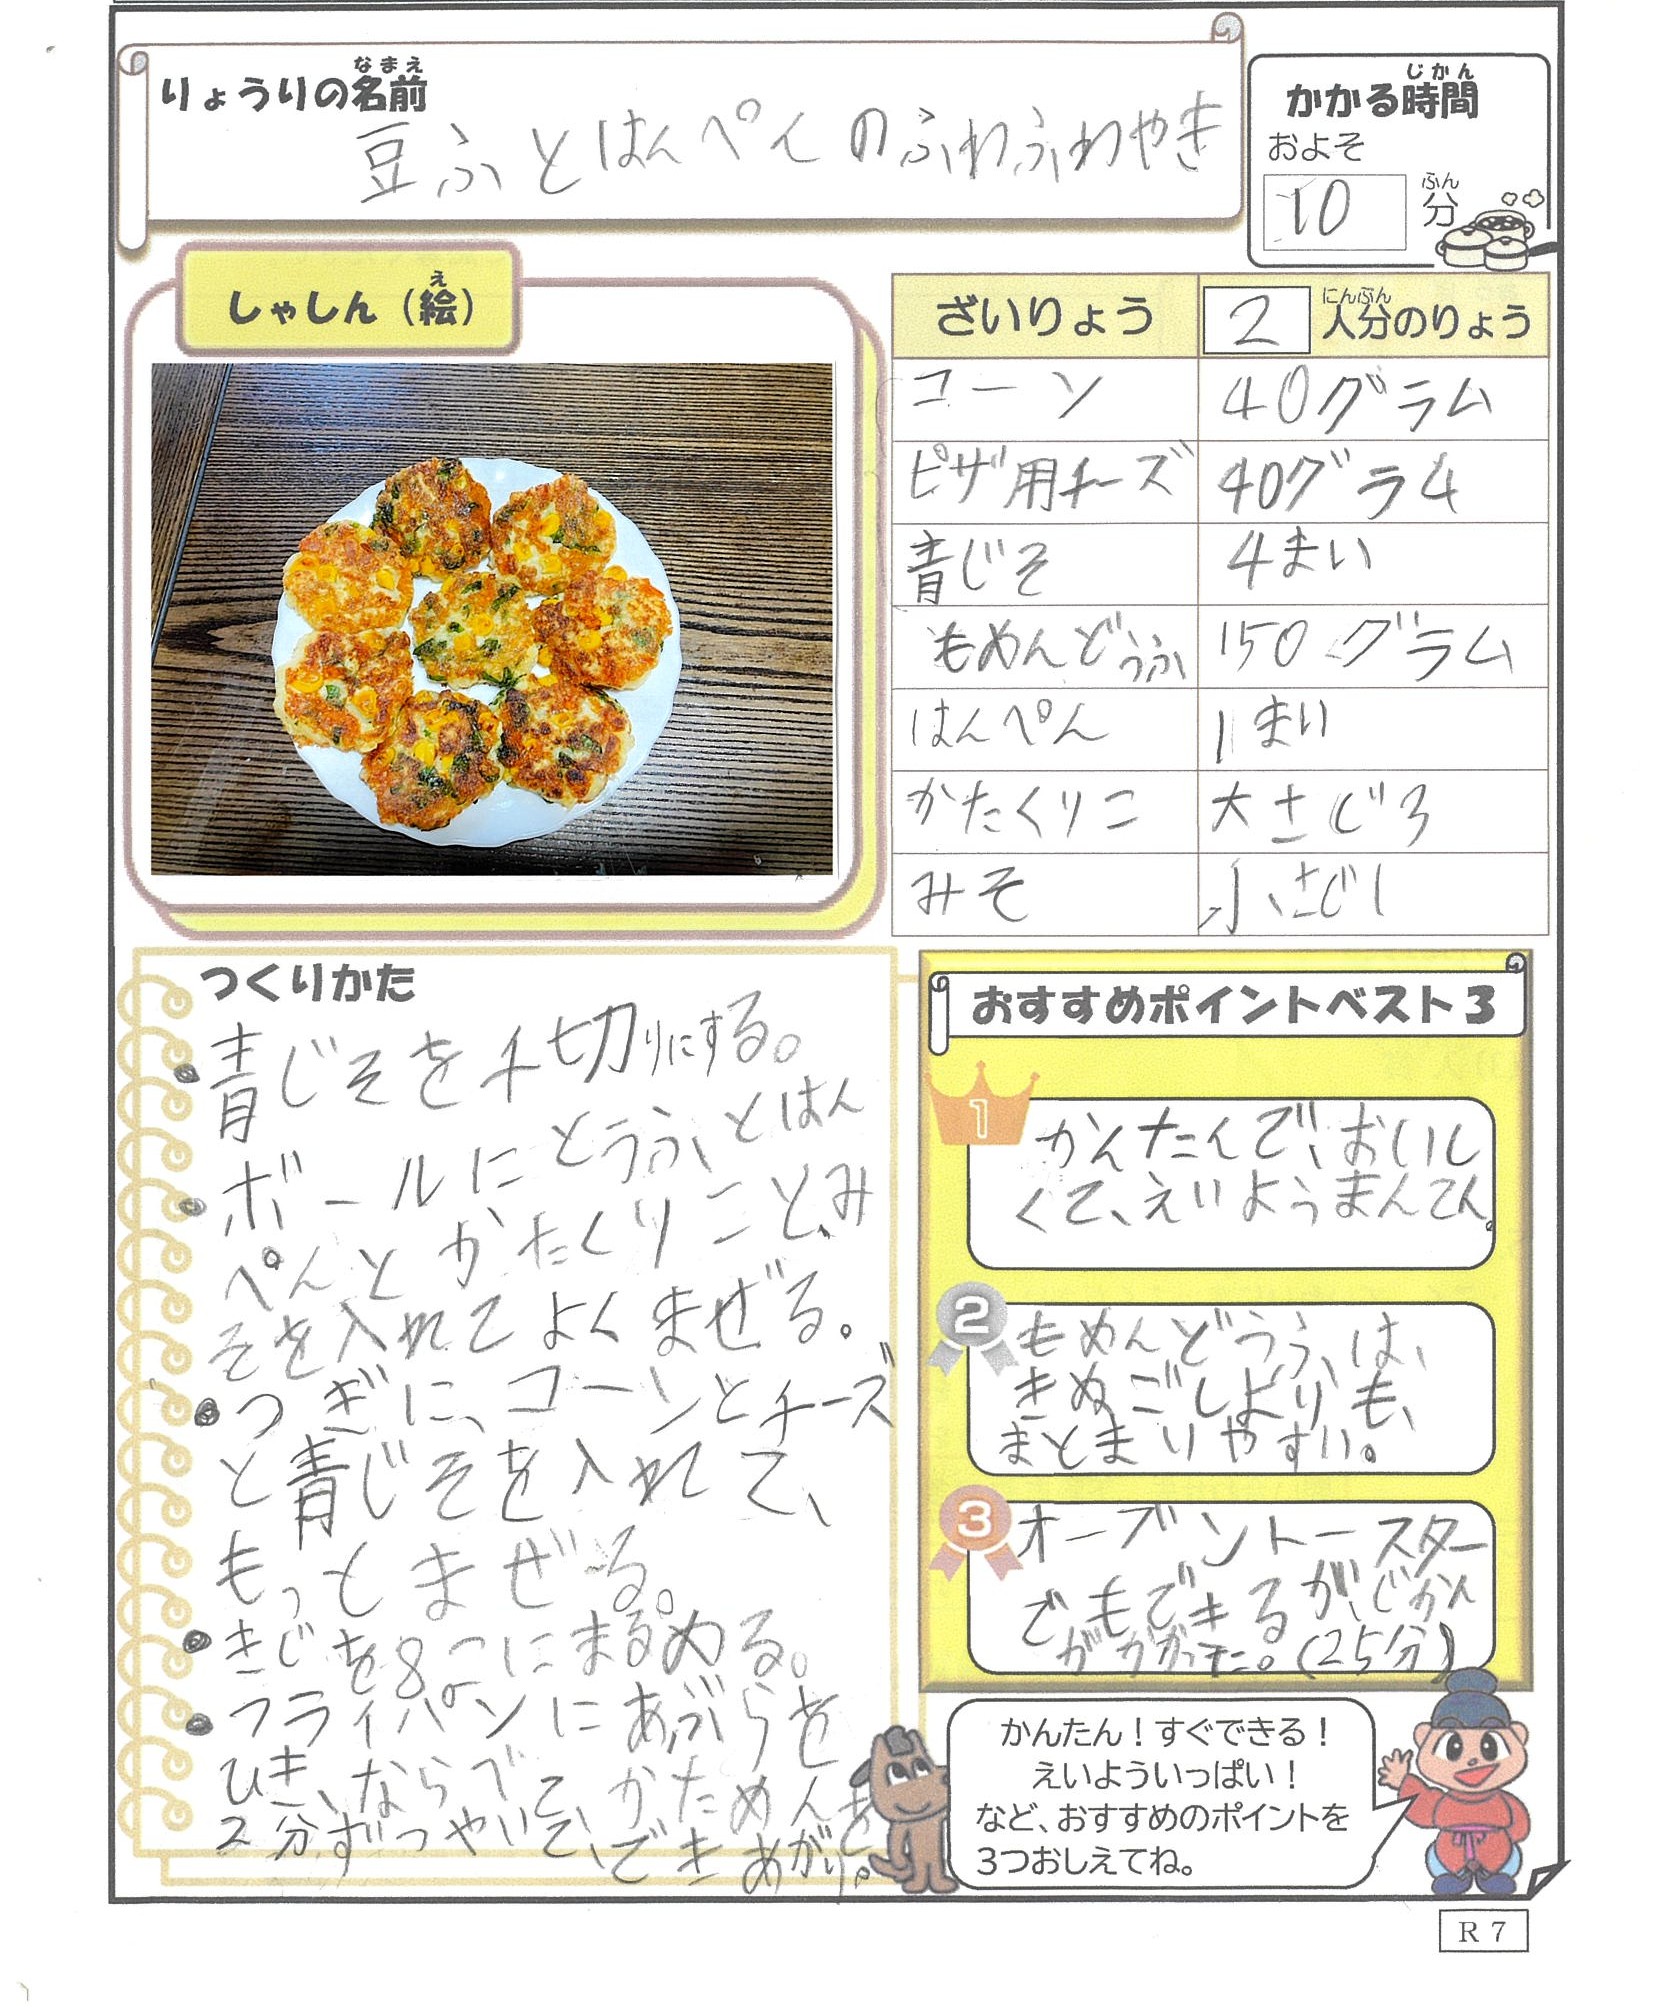 りょうりの名前
なまえ
豆ふとはんぺんのふわふわやき
かかる時間
じかん
およそ
10
分
ふん
しゃしん（絵）
え
ざいりょう 2 人分のりょう
にんぶん
コーン 40グラム
ピザ用チーズ 40グラム
青じそ 4まい
もめんどうふ 150グラム
はんぺん 1まい
かたくりこ 大さじ3
みそ 小さじ1
つくりかた
・青じそを千切りにする。
・ボールにとうふとはん
ぺんとかたくりことみ
そを入れてよくまぜる。
・つぎに、コーンとチーズ
と青じそを入れて、
もっとまぜる。
・きじを8こにまるめる。
・フライパンにあぶらを
ひき、ならべて、かためんを
2分ずつやいて、できあがり。
おすすめポイントベスト3
1
かんたんで、おいし
くて、えいようまんてん。
2
もめんどうふは、
きぬごしよりも、
まとまりやすい。
3
オーブントースター
でもできるが、じかん
がかかった。(25分)
かんたん！すぐできる！
えいよういっぱい！
など、おすすめのポイントを
3つおしえてね。
R7